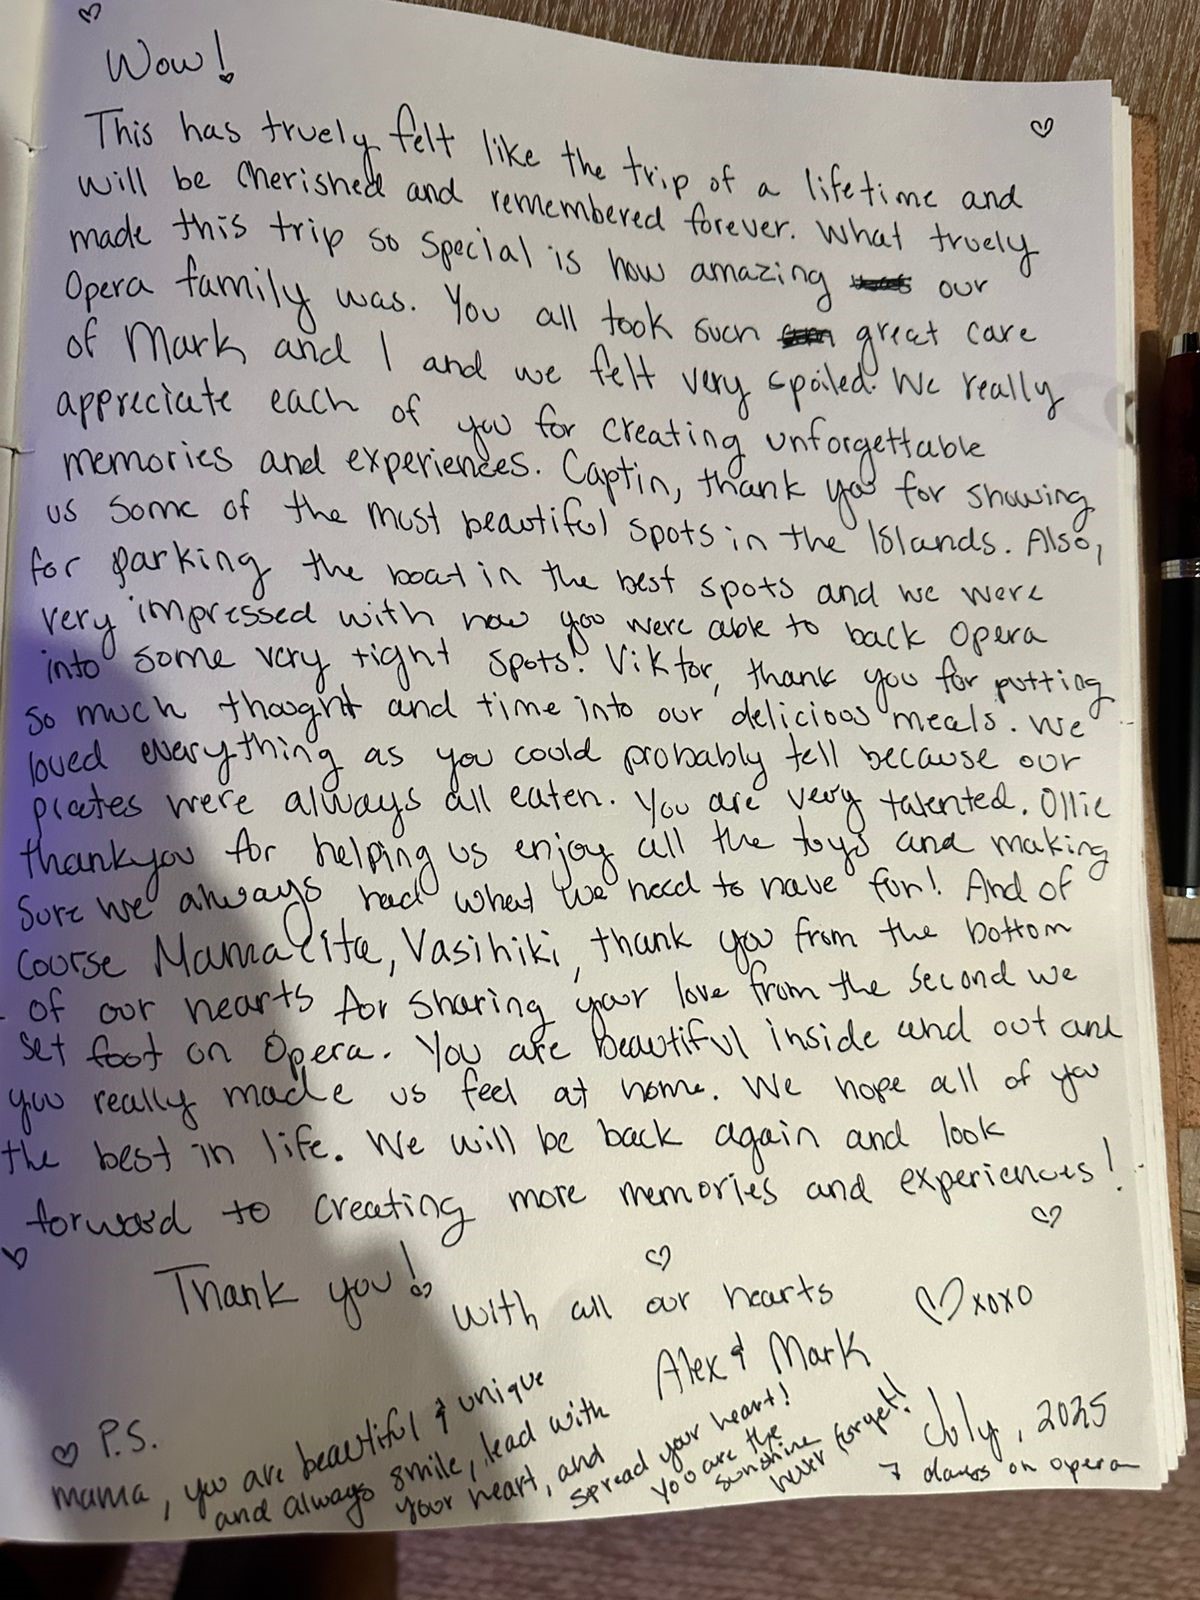 Wow!
This has truely felt like the trip of a lifetime and
will be cherished and remembered forever. What truely
made this trip so special is how amazing our
Opera family was. You all took such great care
of Mark and I and we felt very spoiled. We really
appreciate each of you for creating unforgettable
memories and experiences. Captin, thank you for showing
us some of the most beautiful spots in the Islands. Also,
for parking the boat in the best spots and we were
very impressed with how you were able to back Opera
into some very tight spots! Viktor, thank you for putting
so much thought and time into our delicious meals. We
loved everything as you could probably tell because our
plates were always all eaten. You are very talented. Ollie
thankyou for helping us enjoy all the toys and making
sure we always had what we need to have fun! And of
course Mamacita, Vasihiki, thank you from the bottom
of our hearts for sharing your love from the second we
set foot on Opera. You are beautiful inside and out and
you really made us feel at home. We hope all of you
the best in life. We will be back again and look
forward to creating more memories and experiences!
Thank you!
with all our hearts
xoxo
Alex & Mark
July, 2025
7 days on opera
P.S.
mama, you are beautiful & unique
and always smile, lead with
your heart, and
spread your heart!
You are the
sunshine
never forget!